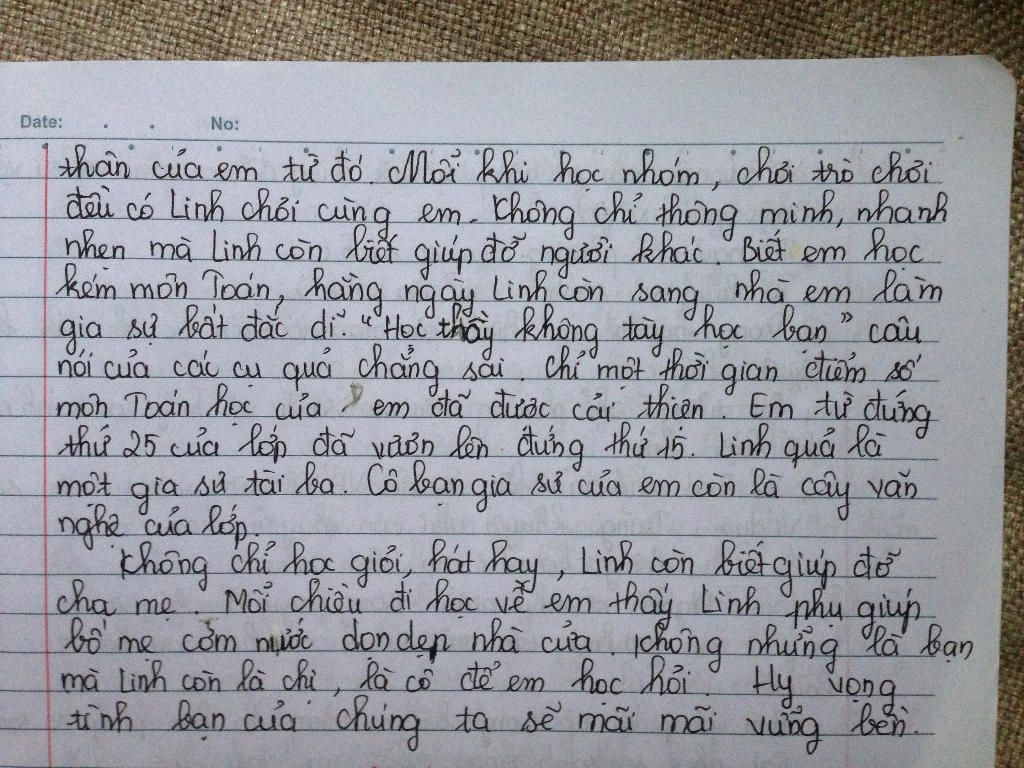 Date: . . No:
thân của em từ đó. Mỗi khi học nhóm, chơi trò chơi
đều có Linh chơi cùng em. Không chỉ thông minh, nhanh
nhẹn mà Linh còn biết giúp đỡ người khác. Biết em học
kém môn Toán, hằng ngày Linh còn sang nhà em làm
gia sư bất đắc dĩ. “Học thầy không tày học bạn” câu
nói của các cụ quả chẳng sai. Chỉ một thời gian điểm số
môn Toán học của em đã được cải thiện. Em từ đứng
thứ 25 của lớp đã vươn lên đứng thứ 15. Linh quả là
một gia sư tài ba. Cô bạn gia sư của em còn là cây văn
nghệ của lớp.
Không chỉ học giỏi, hát hay, Linh còn biết giúp đỡ
cha mẹ. Mỗi chiều đi học về em thấy Linh phụ giúp
bố mẹ cơm nước dọn dẹp nhà cửa. Không những là bạn
mà Linh còn là chị, là cô để em học hỏi. Hy vọng
tình bạn của chúng ta sẽ mãi mãi vững bền.